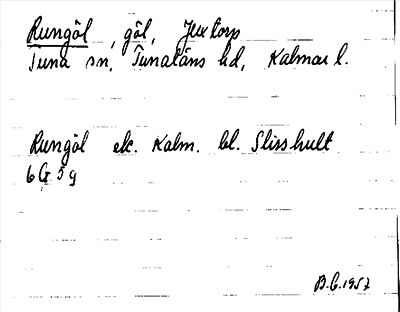 Rungöl, göl, Juxtorp
Tuna sn, Tunaläns hd, Kalmar l.
Rungöl ek. Kalm. bl. Slisshult
6G 5g
B.G. 1957